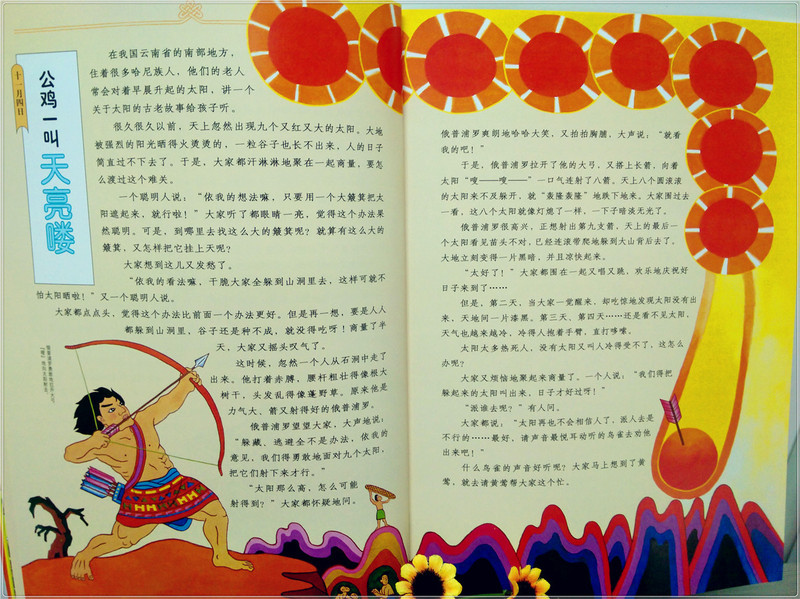 十一月四日
公鸡一叫
天亮喽
在我国云南省的南部地方，
住着很多哈尼族人，他们的老人
常会对着早晨升起的太阳，讲一个
关于太阳的古老故事给孩子听。
很久很久以前，天上忽然出现九个又红又大的太阳。大地
被强烈的阳光晒得火烫烫的，一粒谷子也长不出来，人的日子
简直过不下去了。于是，大家都汗淋淋地聚在一起商量，要怎
么渡过这个难关。
一个聪明人说：“依我的想法嘛，只要用一个大簸箕把太
阳遮起来，就行啦！”大家听了都眼睛一亮，觉得这个办法果
然聪明。可是，到哪里去找这么大的簸箕呢？就算有这么大的
簸箕，又怎样把它挂上天呢？
大家想到这儿又发愁了。
“依我的看法嘛，干脆大家全躲到山洞里去，这样可就不
怕太阳晒啦！”又一个聪明人说。
大家都点点头，觉得这个办法比前面一个办法更好。但是再一想，要是人人
都躲到山洞里，谷子还是种不成，就没得吃呀！商量了半
天，大家又摇头叹气了。
这时候，忽然一个人从石洞中走了
出来。他打着赤膊，腰杆粗壮得像根大
树干，头发乱得像蓬野草。原来他是
力气大、箭又射得好的俄普浦罗。
俄普浦罗望望大家，大声地说：
“躲藏、逃避全不是办法，依我的
意见，我们得勇敢地面对九个太阳，
把它们射下来才行。”
“太阳那么高，怎么可能
射得到？”大家都怀疑地问。
俄普浦罗爽朗地哈哈大笑，又拍拍胸脯，大声说：“就看
我的吧！”
于是，俄普浦罗拉开了他的大弓，又搭上长箭，向着
太阳“嗖——嗖——”一口气连射了八箭。天上八个圆滚滚
的太阳来不及躲开，就“轰隆轰隆”地跌下地来。大家围过去
一看，这八个太阳就像灯熄了一样，一下子暗淡无光了。
俄普浦罗很高兴，正想射出第九支箭，天上的最后一
个太阳看见苗头不对，已经连滚带爬地躲到大山背后去了。
大地立刻变得一片黑暗，并且凉快起来。
“太好了！”大家都围在一起又唱又跳，欢乐地庆祝好
日子来到了……
但是，第二天，当大家一觉醒来，却吃惊地发现太阳没有出
来，天地间一片漆黑。第三天、第四天……还是看不见太阳，
天气也越来越冷，冷得人抱着手臂，直打哆嗦。
太阳太多热死人，没有太阳又叫人冷得受不了，这怎么
办呢？
大家又烦恼地聚起来商量了。一个人说：“我们得把
躲起来的太阳叫出来，日子才好过呀！”
“派谁去呢？”有人问。
大家都说：“太阳再也不会相信人了，派人去是
不行的……最好，请声音最悦耳动听的鸟雀去劝他
出来吧！”
什么鸟雀的声音好听呢？大家马上想到了黄
莺，就去请黄莺帮大家这个忙。